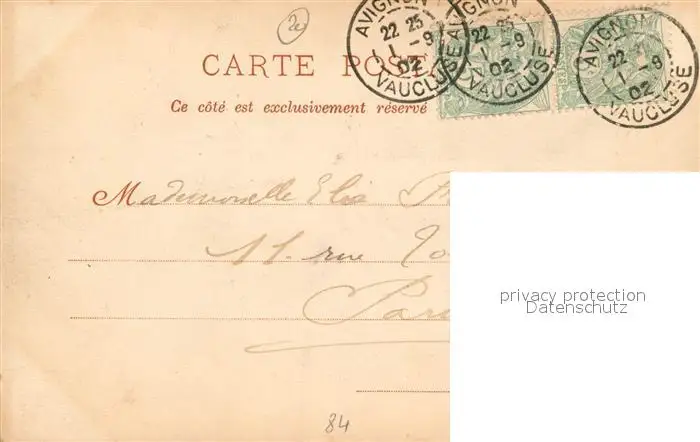 2e
AVIGNON
22 25
1 - 9
02
VAUCLUSE
AVIGNON
22 25
1 - 9
02
VAUCLUSE
AVIGNON
22
1 - 9
02
VAUCLUSE
CARTE POSTA
Ce côté est exclusivement réservé
Mademoiselle Elie
11. rue
Par
privacy protection
Datenschutz
84